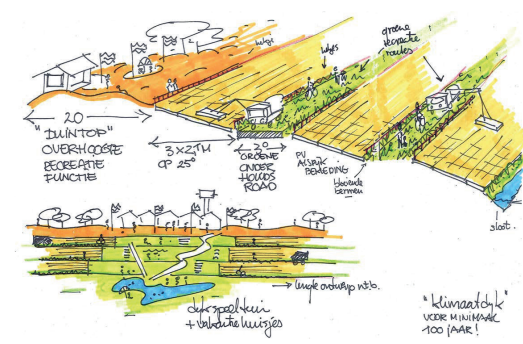 hekje
hekjes
groene
recreatie
routes
20
"DUINTOP"
OVERHOOGTE
RECREATIE
FUNCTIE
3x2,1M
OP 25°
20
GROENE
ONDER
HOUDS
ROAD
PV
ALS DIJK
BEKLEDING
bloeiende
bermen
sloot.
lengte ontwerp n.t.b.
dijkspeeltuin
+ vakantiehuisjes
"klimaatdijk"
VOOR MINIMAAL
100 JAAR!